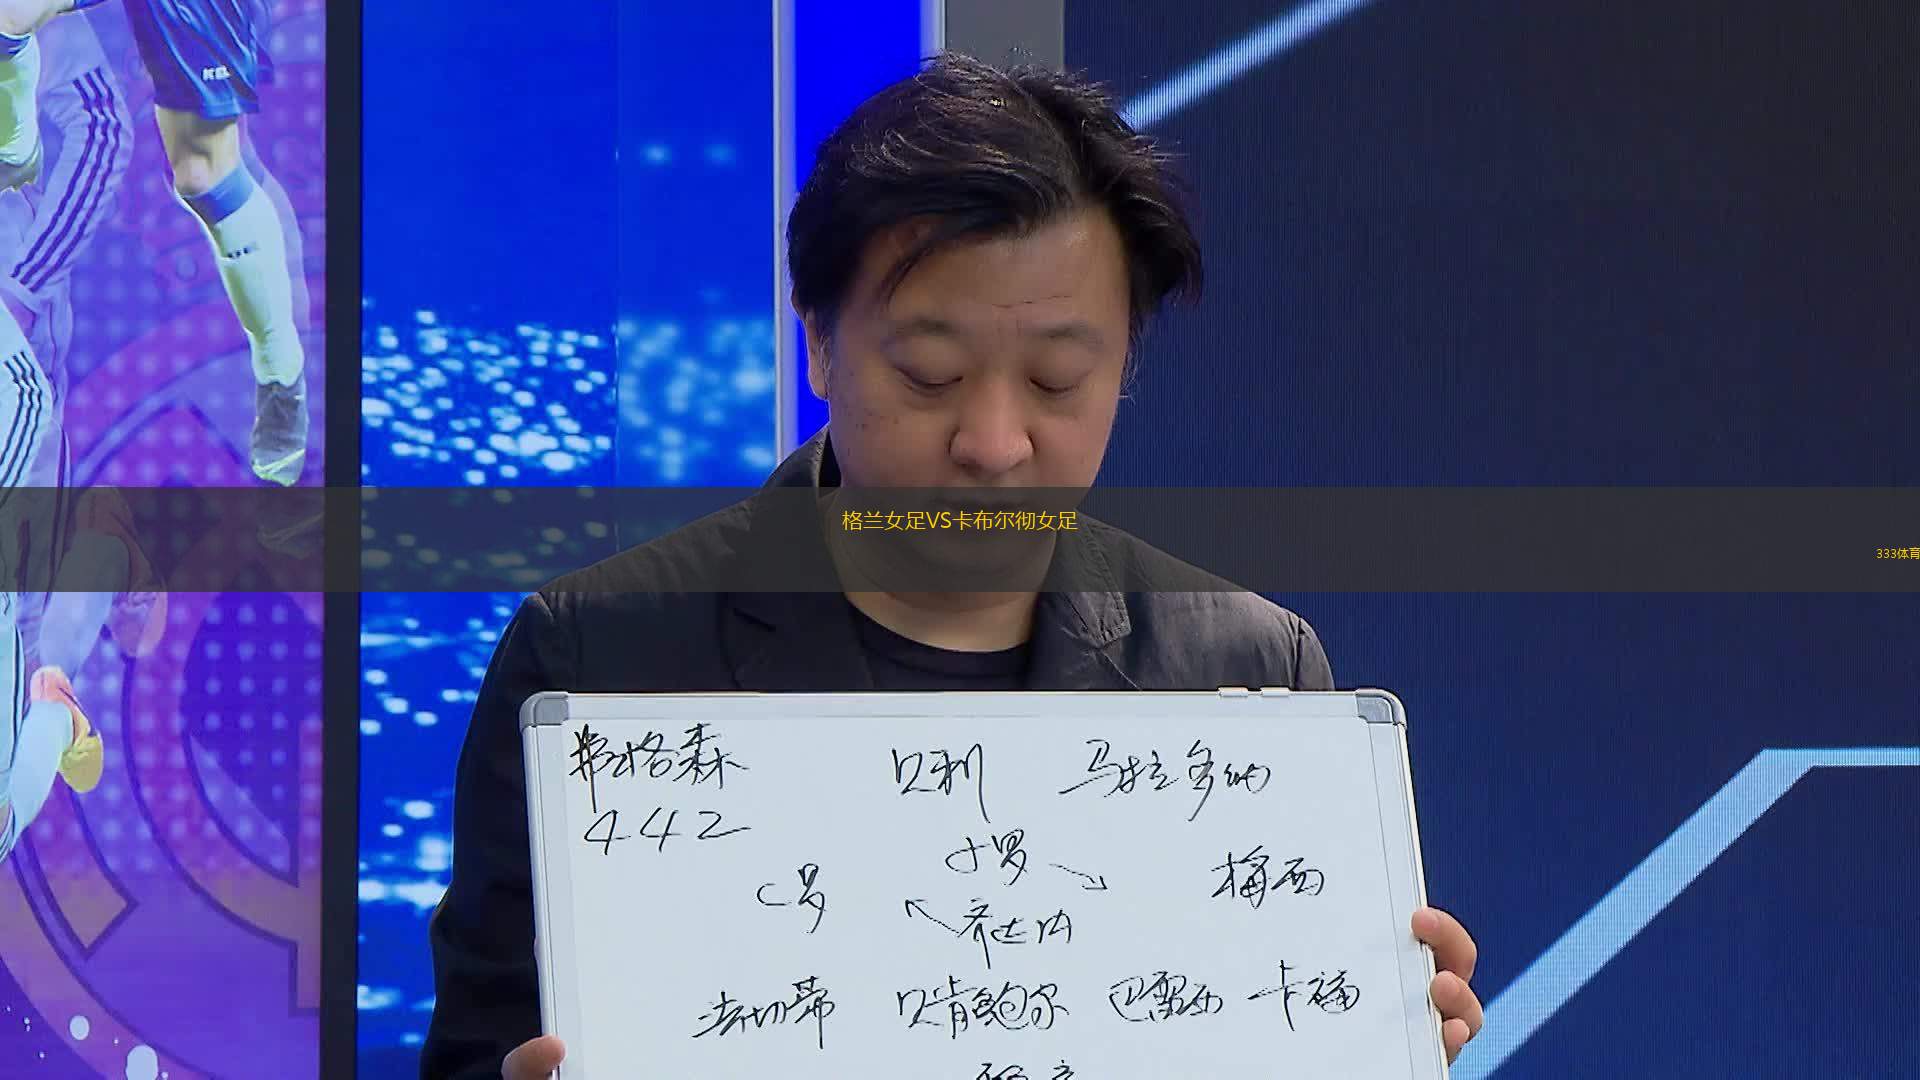 格兰女足VS卡布尔彻女足
333体育
弗格森 贝利 马拉多纳
442
小罗
C罗 梅西
齐达内
法切蒂 贝肯鲍尔 巴雷西 卡福